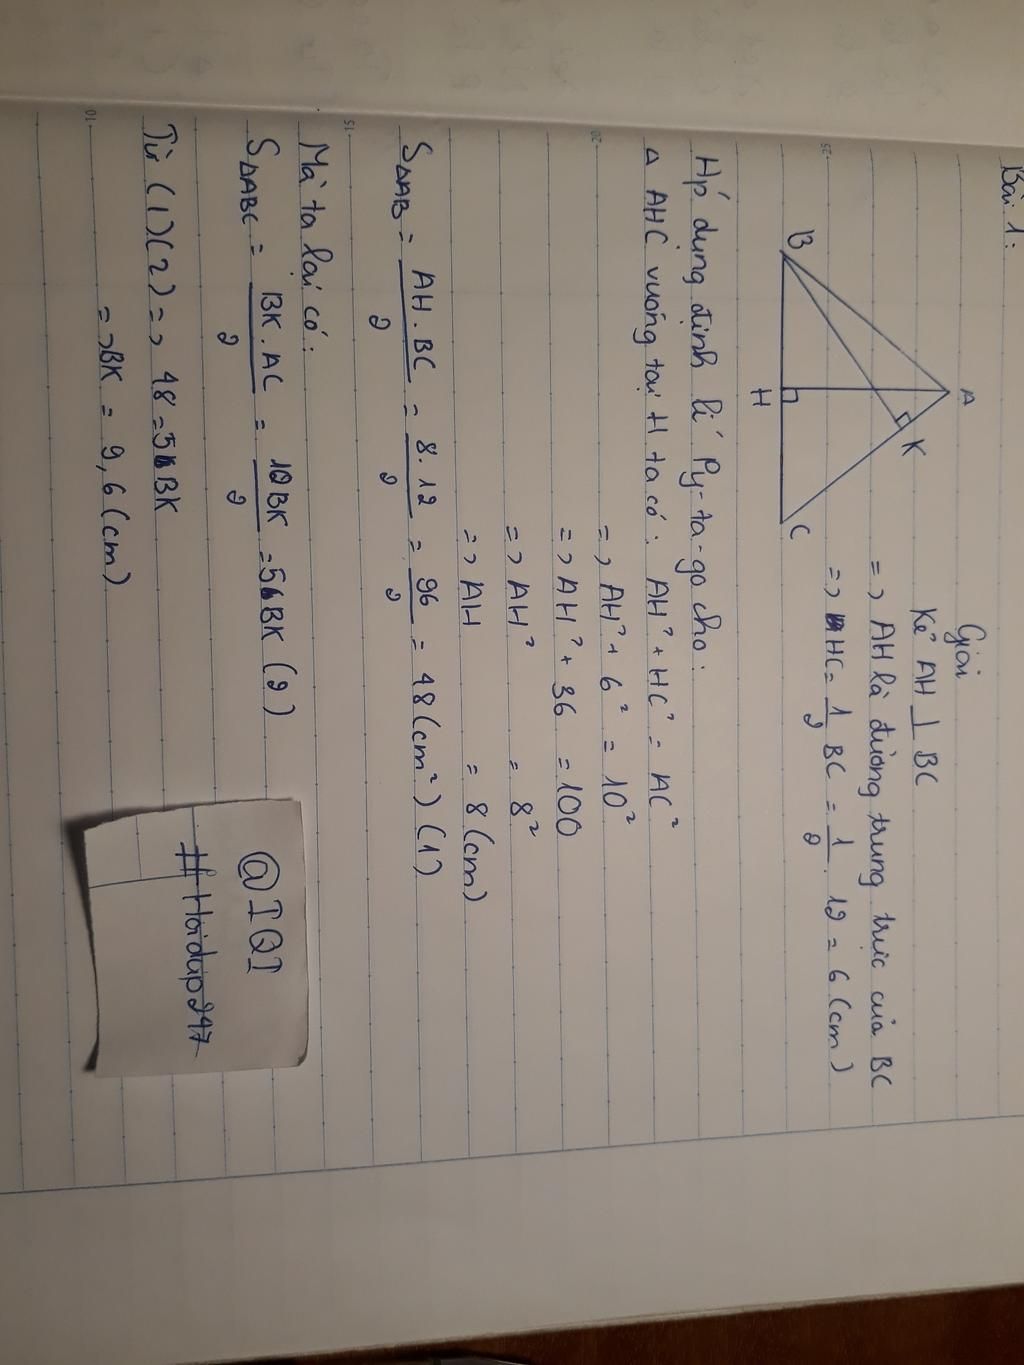 Bài 1:
A
B
H
C
K
Giải
Kẻ AH ⊥ BC
=> AH là đường trung trực của BC
=> HC = 1/2 BC = 1/2 . 12 = 6 (cm)
Áp dụng định lí Py-ta-go cho:
Δ AHC vuông tại H ta có: AH² + HC² = AC²
=> AH² + 6² = 10²
=> AH² + 36 = 100
=> AH² = 8²
=> AH = 8 (cm)
SΔAB = AH . BC / 2 = 8 . 12 / 2 = 96 / 2 = 48 (cm²) (1)
Mà ta lại có:
SΔABC = BK . AC / 2 = 10BK / 2 = 5BK (2)
Từ (1) (2) => 48 = 5BK
=> BK = 9,6 (cm)
@IQI
#Hoidap247
15
20
25
10